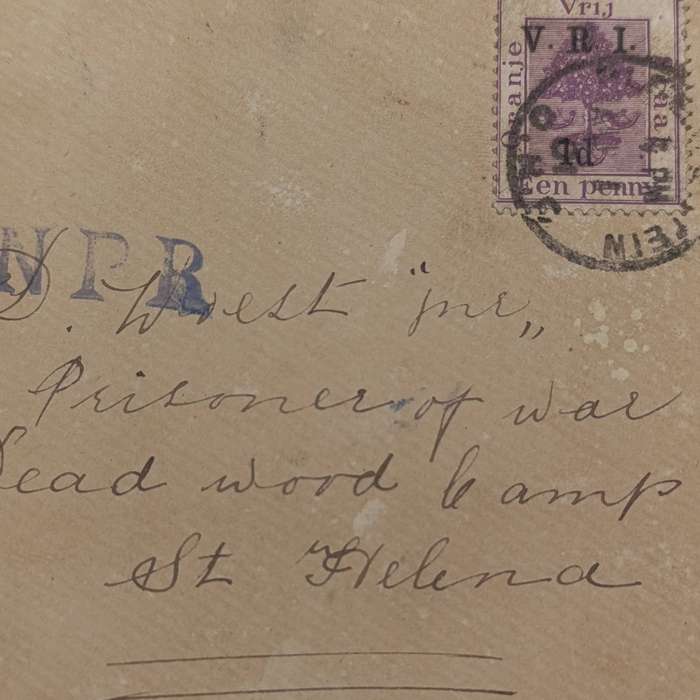 Vrij
V. R. I.
Oranje
1d
Een penny
TEIN
NPR
D. Woest "jnr"
Prisoner of war
Dead wood Camp
St Helena